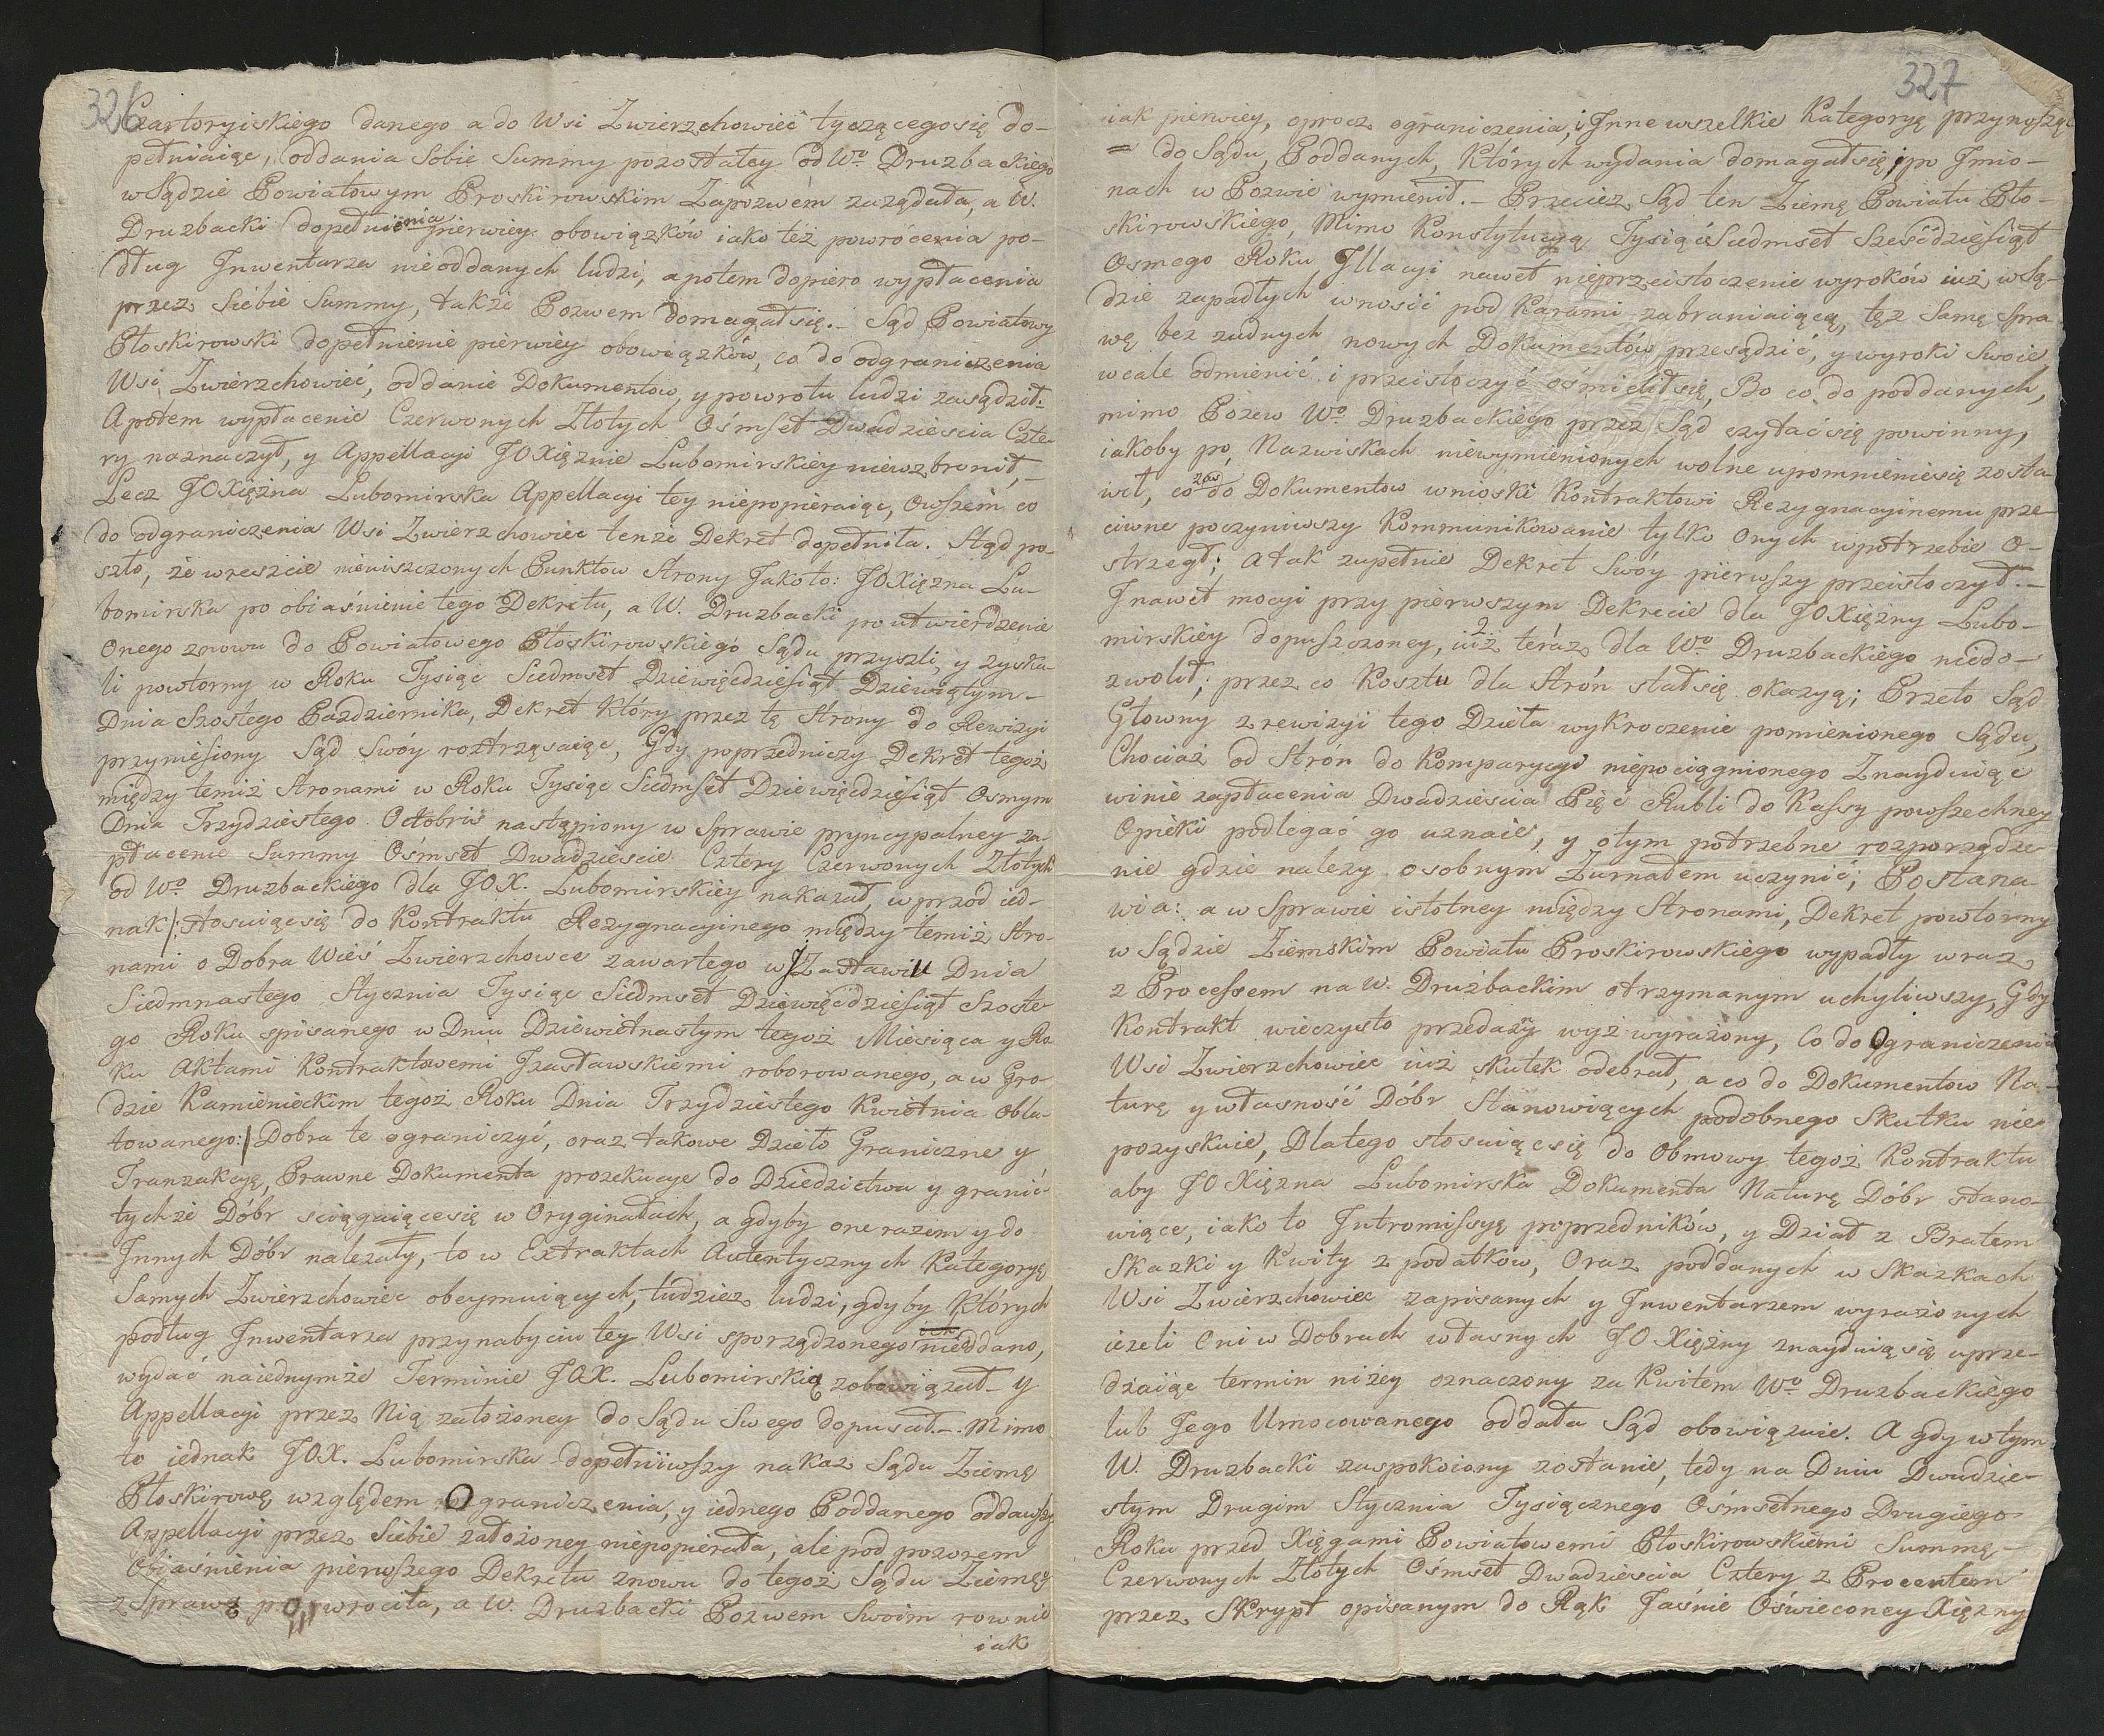 326
Czartoryiskiego danego a do Wsi Zwierzchowiec tyczącego się do-
pełniaiąc, oddania Sobie Summy pozostałey od Wo Druzbackiego
w Sądzie Powiatowym Proskirowskim Zapozwem zażądała, a W.
Druzbacki dopełnienia pierwiey obowiązków iako też powrócenia po-
dług Inwentarza nieoddanych ludzi, a potem dopiero wypłacenia
przez Siebie Summy, także Pozwem domagał się.- Sąd Powiatowy
Płoskirowski dopełnienie pierwiey obowiązków, co do odgraniczenia
Wsi Zwierzchowieć, oddanie Dokumentow, y powrotu ludzi zasądził.-
A potem wypłacenie Czerwonych Złotych Ośmset Dwadziescia Czte-
ry naznaczył, y Appellacyi JOXiężnie Lubomirskiey niewzbronił,-
Lecz JOXiężna Lubomirska Appellacyi tey niepopieraiąc, Owszem co
do odgraniczenia Wsi Zwierzchowiec tenże Dekret dopełniła. Stąd po-
szło, że wreszcie nieuiszczonych Punktow Strony Jako to: JOXiężna Lu-
bomirska po obiaśnienie tego Dekretu, a W. Druzbacki po utwierdzenie
Onego znowu do Powiatowego Płoskirowskiego Sądu przyszli, y zyska-
li powtorny w Roku Tysiąc Siedmset Dziewięćdziesiąt Dziewiątym-
Dnia Szostego Pazdziernika, Dekret Który przez tę Strony do Rewizyi
przyniesiony Sąd Swóy roztrząsaiąc, Gdy poprzedniczy Dekret tegoż
między temiż Stronami w Roku Tysiąc Siedmset Dziewięćdziesiąt Osmym
Dnia Trzydziestego Octobris nastąpiony w Sprawie pryncypalney za-
płacenie Summy Ośmset Dwadzieście Cztery Czerwonych Złotych
od Wo Druzbackiego dla JOX. Lubomirskiey nakazał, w przód ied-
nak /: stosuiąc się do Kontraktu Rezygnacyinego między temiż Stro-
nami o Dobra Wieś Zwierzchowce zawartego w Zasławiu Dnia
Siedmnastego Stycznia Tysiąc Siedmset Dziewięćdziesiąt Szoste-
go Roku spisanego w Dniu Dziewietnastym tegoż Miesiąca y Ro
ku Aktami Kontraktowemi Izasławskiemi roborowanego, a w Gro-
dzie Kamienieckim tegoż Roku Dnia Trzydziestego Kwietnia obla-
towanego:/ Dobra te ograniczyć, oraz takowe Dzieło Graniczne y
Tranzakcyę, Prawne Dokumenta prozekucye do Dziedzictwa y granic
tychże Dóbr sciągaiące się w Oryginałach, a gdyby one razem y do
Innych Dóbr należały, to w Extraktach Autentycznych Kategoryę
Samych Zwierzchowiec obeymuiących, tudzież ludzi, gdyby Których
podług Inwentarza przy nabyciu tey Wsi sporządzonego nieoddano,
wydać na iednymże Terminie JOX. Lubomirską zobowiązał- y
Appellacyi przez Nią założoney do Sądu Swego dopuscił.- Mimo
to iednak JOX. Lubomirska dopełniwszy nakaz Sądu Ziemę
Płoskirowę względem Ograniczenia, y iednego Poddanego oddawszy
Appellacyi przez Siebie założoney niepopierała, ale pod pozorem
Obiaśnienia pierwszego Dekretu znowu do tegoż Sądu Ziemę
z Sprawą powrociła, a W. Druzbacki Pozwem Swoim rownie
iak
327
iak pierwiey, oprocz ograniczenia, i Inne wszelkie Kategoryę przynosząc
= do Sądu, Poddanych, Których wydania domagał się, i po Imio-
nach w Pozwie wymienił.- Przecież Sąd ten Ziemę Powiatu Pło-
skirowskiego, Mimo Konstytucyą Tysiąc Siedmset Sześćdziesiąt
Osmego Roku Illacyi nawet nieprzeistoczenie wyroków iuż w Są-
dzie zapadłych wnosić pod Karami zabraniaiącą, tęż Samę Spra
wę bez żadnych nowych Dokumentów przesądzić, y wyroki Swoie
wcale odmienić i przeistoczyć ośmielił się, Bo co do poddanych,
mimo Pozew Wo Druzbackiego przez Sąd czytać się powinny,
iakoby po Nazwiskach niewymienionych wolne upomnienie się zosta
wił, co zaś do Dokumentow wnioski Kontraktowi Rezygnacyinemu prze-
ciwne poczyniwszy Kommunikowanie tylko Onych w potrzebie o-
strzegł; a tak zupełnie Dekret Swóy pierwszy przeistoczył.-
I nawet mocyi przy pierwszym Dekrecie dla JOXiężny Lubo-
mirskiey dopuszczoney, iuż teraz dla Wo Druzbackiego niedo-
zwolił; przez co Kosztu dla Strón stał się okazyą; Przeto Sąd
Głowny z rewizyi tego Dzieła wykroczenie pomienionego Sądu,
Chociaż od Strón do Komparycyi niepociągnionego Znayduiąc
winie zapłacenia Dwadziescia Pięć Rubli do Kassy powszechney
Opieki podlegać go uznaie, y o tym potrzebne rozporządze-
nie gdzie nalezy osobnym Żurnałem uczynić; Postana-
wia: a w Sprawie istotney między Stronami, Dekret powtorny
w Sądzie Ziemskim Powiatu Proskirowskiego wypadły wraz
z Processem na W. Druźbackim otrzymanym uchyliwszy, Gdy
Kontrakt wieczysto przedaży wyż wyrażony, Co do Ograniczenia
Wsi Zwierzchowiec iuż skutek odebrał, a co do Dokumentow Na-
turę y własność Dóbr Stanowiących podobnego Skutku nie-
pozyskuie, Dlatego stosuiąc się do Obmowy tegoż Kontraktu
aby JO Xiężna Lubomirska Dokumenta Naturę Dóbr stano-
wiące, iako to Intromissyę poprzedników, y Dział z Bratem
Skazki y Kwity z podatków, Oraz poddanych w Skazkach
Wsi Zwierzchowiec zapisanych y Inwentarzem wyrażonych
ieżeli Oni w Dobrach własnych JO Xiężny znayduią się uprze-
dzaiąc termin niżey oznaczony za Kwitem Wo Druzbackiego
lub Jego Umocowanego oddała Sąd obowiązuie. A gdy w tym
W. Druzbacki zaspokoiony zostanie, tedy na Dniu Dwudzie-
stym Drugim Stycznia Tysiącznego Ośmsetnego Drugiego
Roku przed Xięgami Powiatowemi Płoskirowskiemi Summę-
Czerwonych Złotych Ośmset Dwadziescia Cztery z Procentem
przez Skrypt opisanym do Rąk Jaśnie Oświeconey Xiężny